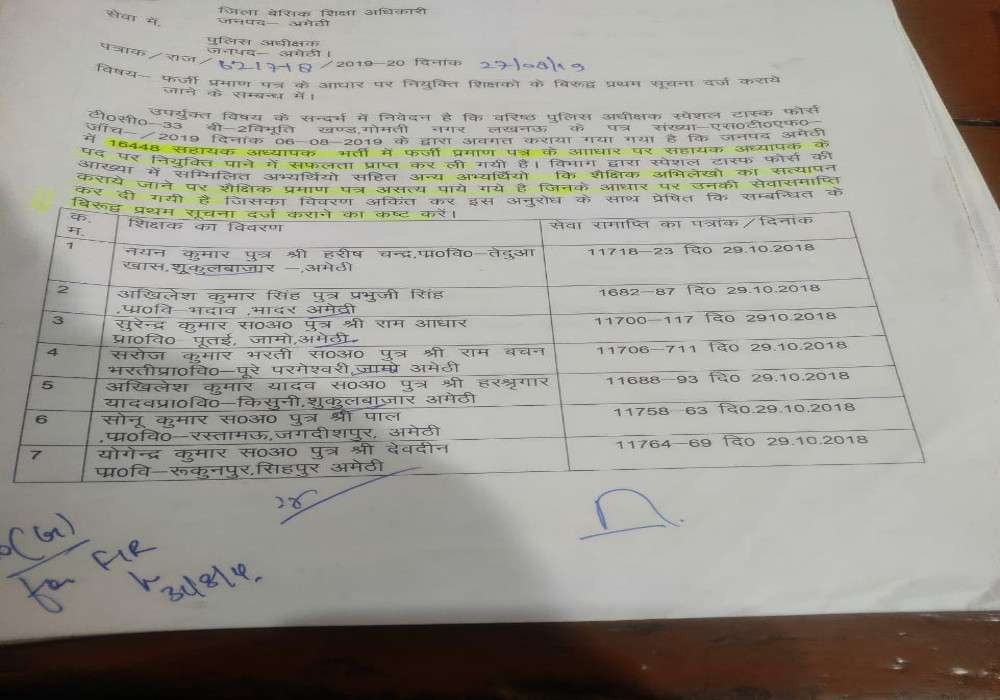 जिला बेसिक शिक्षा अधिकारी
सेवा में, जनपद– अमेठी
पुलिस अधीक्षक
जनपद– अमेठी।
पत्राक / राज / 621718 / 2019–20 दिनांक 27/08/19
विषय– फर्जी प्रमाण पत्र के आधार पर नियुक्ति शिक्षको के बिरूद्व प्रथम सूचना दर्ज कराये
जाने के सम्बन्ध में।
उपर्युक्त विषय के सन्दर्भ में निवेदन है कि वरिष्ठ पुलिस अधीक्षक स्पेशल टास्क फोर्स
टी०सी०–33 बी–2विभूति खण्ड,गोमती नगर लखनऊ के पत्र संख्या–एस०टी०एफ०–
जॉच–/2019 दिनांक 06–08–2019 के द्वारा अवगत कराया गया गया है कि जनपद अमेठी
में 16448 सहायक अध्यापक भर्ती मे फर्जी प्रमाण पत्र के आाधार पर सहायक अध्यापक के
पद पर नियुक्ति पाने में सफलता प्राप्त कर ली गयी है। विभाग द्वारा स्पेशल टास्फ फोर्स की
आख्या में सम्मिलित अभ्यर्थियो सहित अन्य अभ्यर्थियो कि शैक्षिक अभिलेखो का सत्यापन
कराये जाने पर शैक्षिक प्रमाण पत्र असत्य पाये गये है जिनके आधार पर उनकी सेवासमाप्ति
कर दी गयी है जिसका विवरण अकिंत कर इस अनुरोध के साथ प्रेषित कि सम्बन्धित के
बिरूद्व प्रथम सूचना दर्ज कराने का कष्ट करें।
क. म. शिक्षाक का विवरण सेवा समाप्ति का पत्रांक / दिनांक
1 नयन कुमार पुत्र श्री हरीष चन्द्र,प्रा०वि०–तेदुआ 11718–23 दि0 29.10.2018
खास,शुकुलबाजार –,अमेठी
2 अखिलेश कुमार सिंह पुत्र प्रभुजी सिंह 1682–87 दि0 29.10.2018
,प्रा०वि भदाव ,भादर अमेठी
3 सुरेन्द्र कुमार स०अ० पुत्र श्री राम आधार 11700–117 दि0 2910.2018
प्रा०वि० पूतई, जामो,अमेठी
4 सरोज कुमार भरती स०अ० पुत्र श्री राम बचन 11706–711 दि0 29.10.2018
भरतीप्रा०वि०–पूरे परगेश्वरी,जामो अमेठी
5 अखिलेश कुमार यादव स०अ० पुत्र श्री हरश्रृगार 11688–93 दि0 29.10.2018
यादवप्रा०वि०–किसुनी,शुकुलबाजार अमेठी
6 सोनू कुमार स०अ० पुत्र श्री पाल 11758–63 दि0.29.10.2018
,प्रा०वि०–रस्तामऊ,जगदीशपुर, अमेठी
7 योगेन्द्र कुमार स०अ० पुत्र श्री देवदीन 11764–69 दि0 29.10.2018
प्रा०वि–रूकुनपुर,सिहपुर अमेठी
for FIR
31/8/19